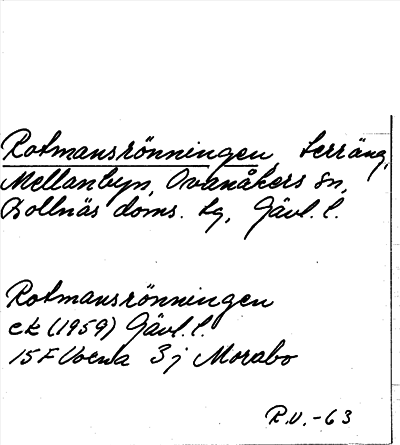 Rotmansrönningen, terräng,
Mellanbyn, Ovanåkers sn,
Bollnäs doms. tg, Gävl. l.
Rotmansrönningen
ek (1959) Gävl. l.
15F Voxna 3j Morabo
R.U. -63